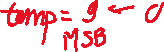 temp = 9 ← 0
MSB